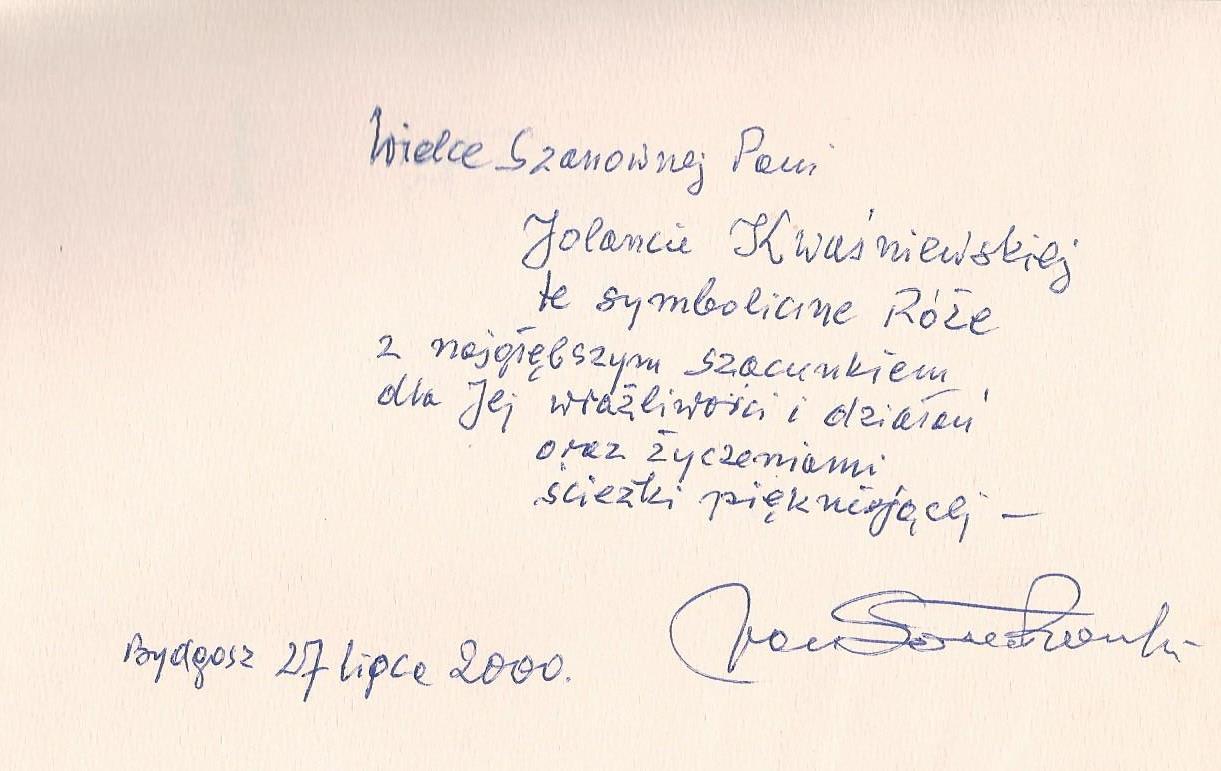 Wielce Szanownej Pani
Jolancie Kwaśniewskiej
te symboliczne Róże
z najgłębszym szacunkiem
dla Jej wrażliwości i działań
oraz życzeniami
ścieżki piękniejącej —
Jan
Bydgosz 27 lipca 2000.